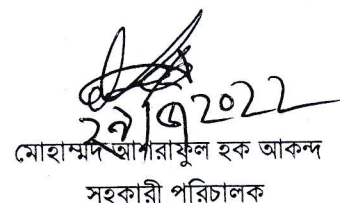 2022
মোহাম্মদ আশরাফুল হক আকন্দ
সহকারী পরিচালক